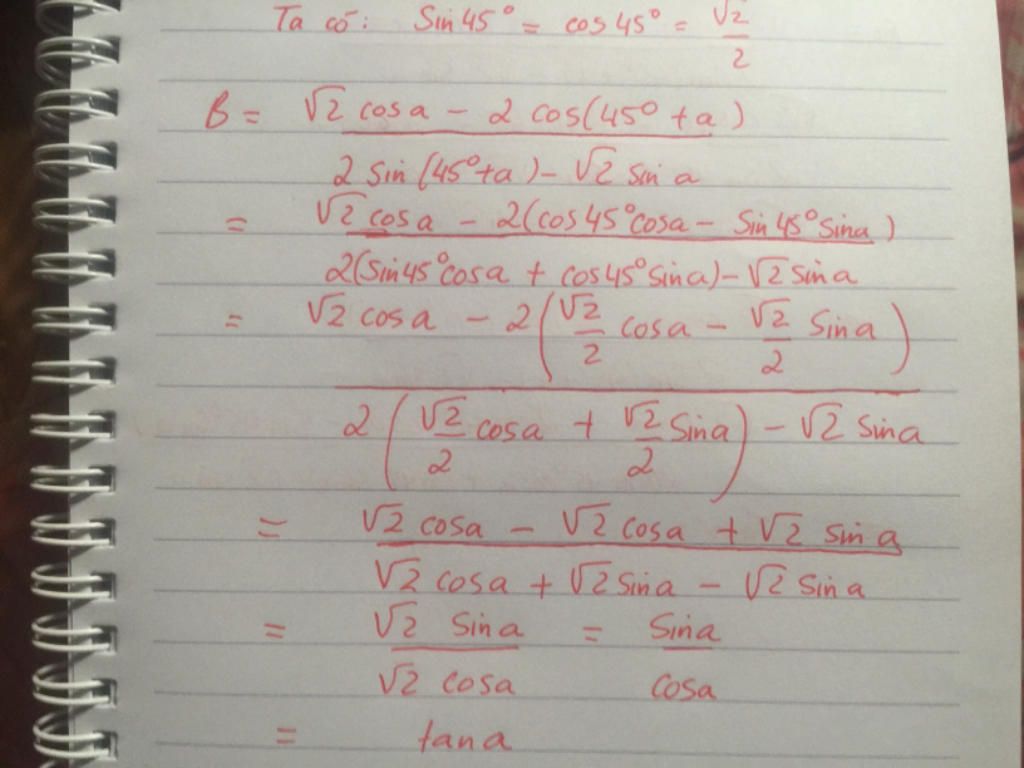 Ta có: Sin 45° = cos 45° = √2/2
B = (√2 cosa - 2 cos(45° + a)) / (2 sin(45° + a) - √2 sin a)
= (√2 cosa - 2(cos45°cosa - Sin45°Sina)) / (2(Sin45°cosa + cos45°Sina) - √2 Sina)
= (√2 cosa - 2(√2/2 cosa - √2/2 Sina)) / (2(√2/2 cosa + √2/2 Sina) - √2 Sina)
= (√2 cosa - √2 cosa + √2 sin a) / (√2 cosa + √2 Sina - √2 Sina)
= (√2 Sina) / (√2 cosa) = Sina / cosa
= tana